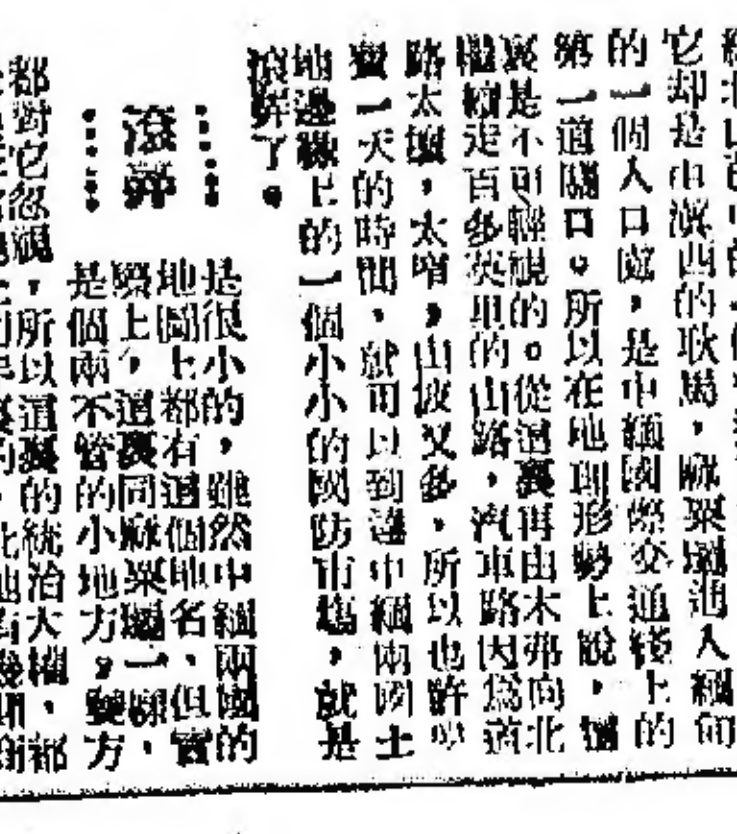 它却是由滇西的耿馬,麻栗壩進入緬甸
的一個人口處,是中緬國際交通綫上的
第一道關口。所以在地理形勢上說,這
裏是不可輕視的。從這裏再由木弄向北
繼續走百多英里的山路,汽車路因爲道
路太壞,太窄,山坡又多,所以也許
一天的時間,就可以到達中緬兩國土
地邊緣上的一個小小的國防市場,就是
滾弄了。
滾弄
是很小的,雖然中緬兩國的
地圖上都有這個地名,但實
際上,這裏同麻栗壩一樣,
是個兩不管的小地方,雙方
都對它忽視,所以這裏的統治大權,都